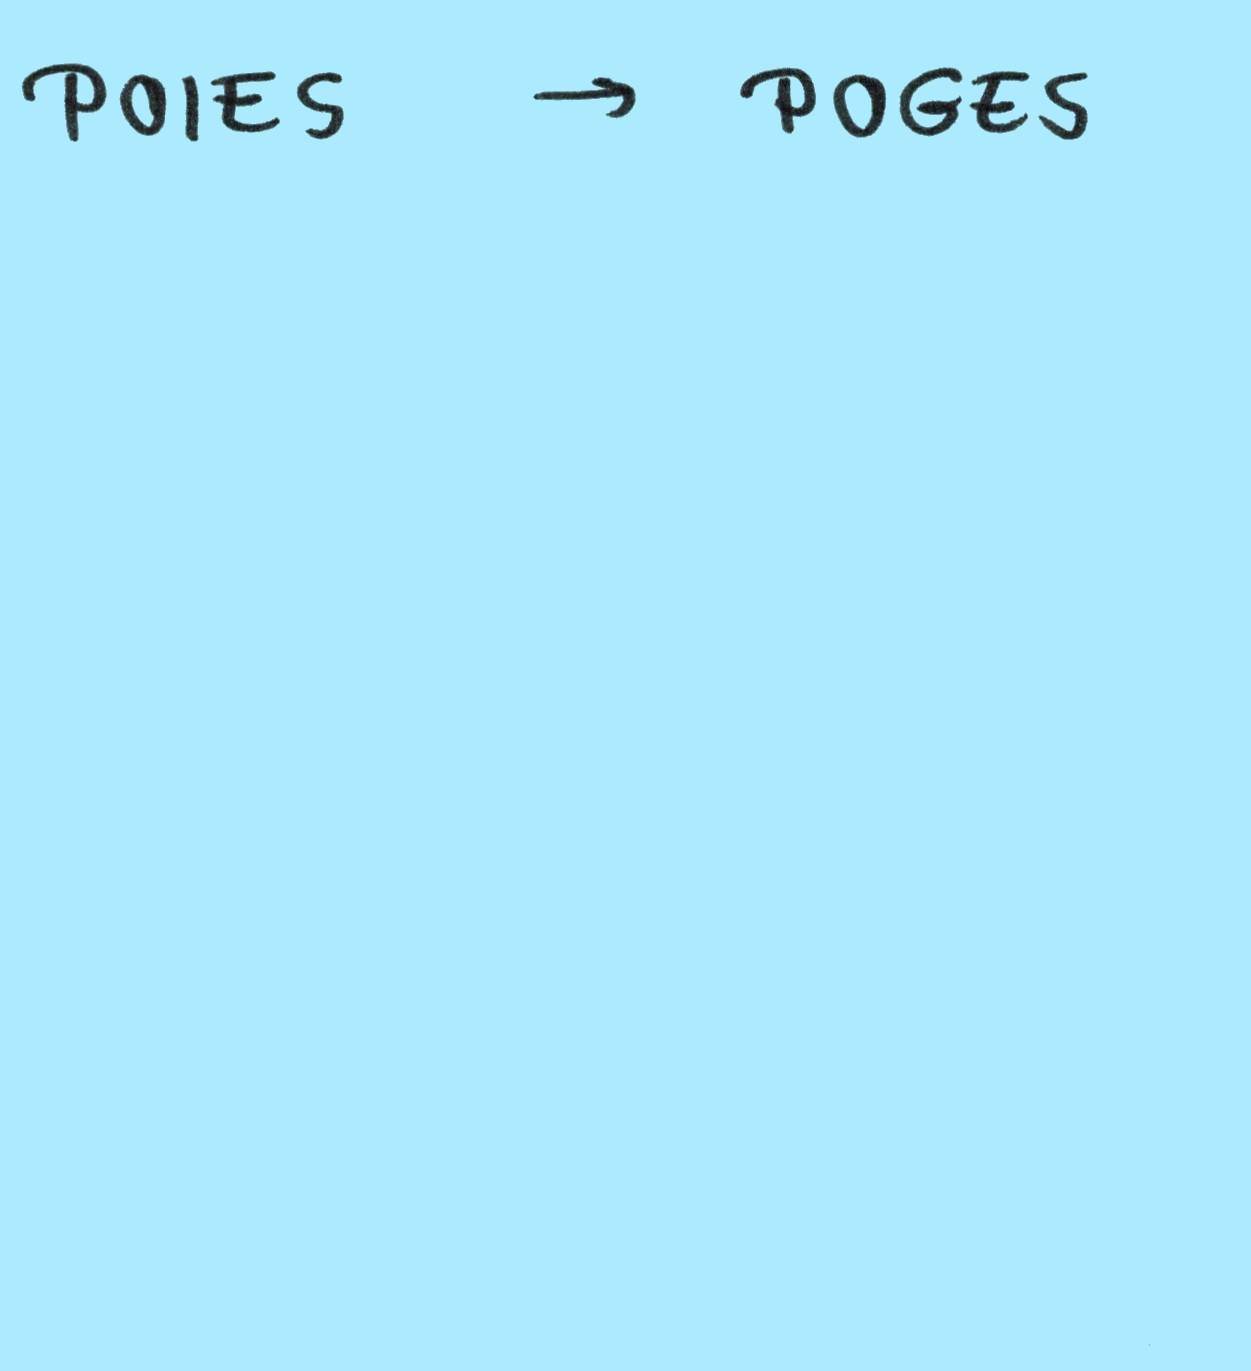 POIES → POGES